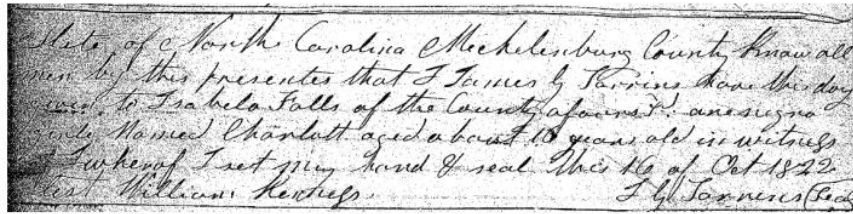 State of North Carolina Mechelenburg County Know all
men by this presentes that I James G Torrins have this day
given to Isabela Falls of the County afoursd. one negro
girle Named Charlott aged about 10 years old in witness
wherof I set my hand & seal this 16 of Oct 1822
Test William J G Torrins (Seal)